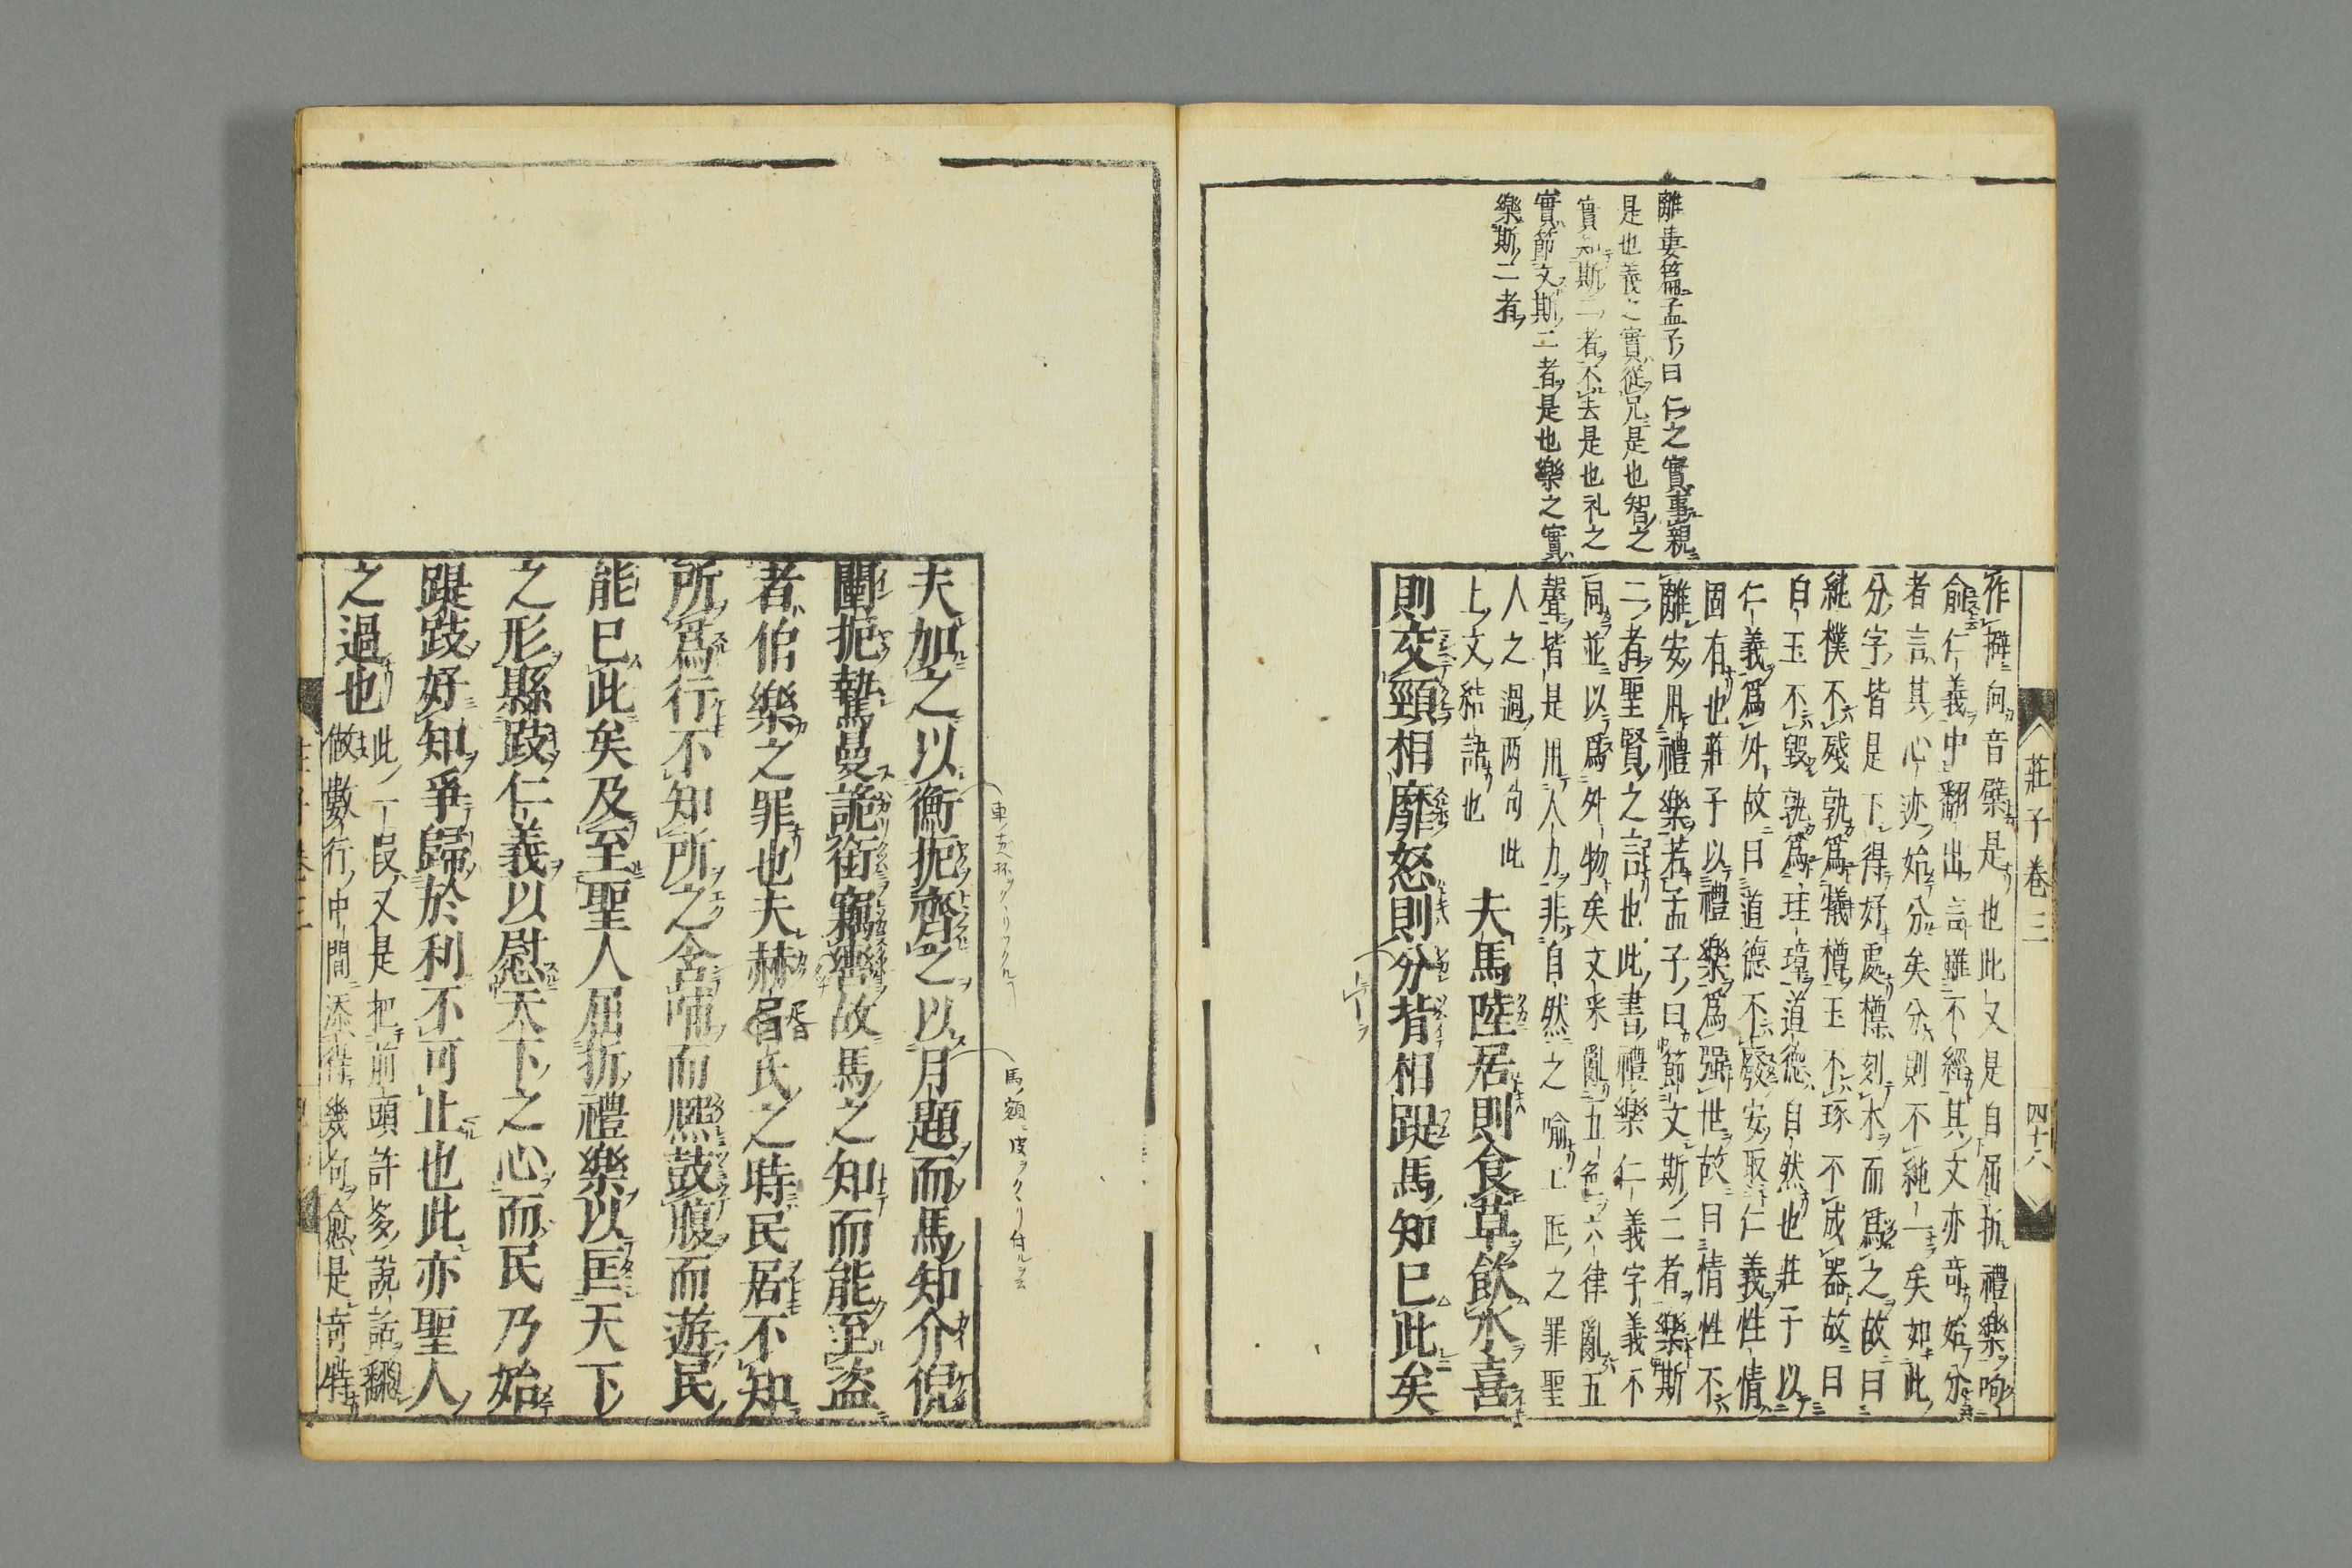 莊子卷三
四十六
離婁篇孟子曰仁之實事親
是也義之實從兄是也智之
實知斯二者不去是也礼之
實節文斯二者是也樂之實
樂斯二者
作擗向音檗是也此又是自屈折禮樂呴
俞仁義中翻出言雖不經其文亦奇始分
者言其心迹始分矣分則不純一矣如此
分字皆是下得好處樽刻木而爲之故曰
純樸不殘孰爲犧樽玉不琢不成器故曰
白玉不毀孰爲珪璋道德自然也莊子以
仁義爲外故曰道德不廢安取仁義性情
固有也莊子以禮樂爲强世故曰情性不
離安用禮樂若孟子曰節文斯二者樂斯
二者聖賢之言也此書禮樂仁義字義不
同並以爲外物矣文采亂五色六律亂五
聲皆是用人力非自然之喻工匠之罪聖
人之過两句此
上文結語也
夫馬陸居則食草飲水喜
則交頸相靡怒則分背相踶馬知已此矣
夫加之以衡扼齊之以月題而馬知介倪
闉扼鷙曼詭銜竊轡故馬之知而能至盜
者伯樂之罪也夫赫胥氏之時民居不知
所爲行不知所之含哺而熈鼓腹而遊民
能已此矣及至聖人屈折禮樂以匡天下
之形縣跂仁義以慰天下之心而民乃始
踶跂好知爭歸於利不可止也此亦聖人
之過也
此一叚又是把前頭許多說話翻
做數行中間添得幾句愈是奇特